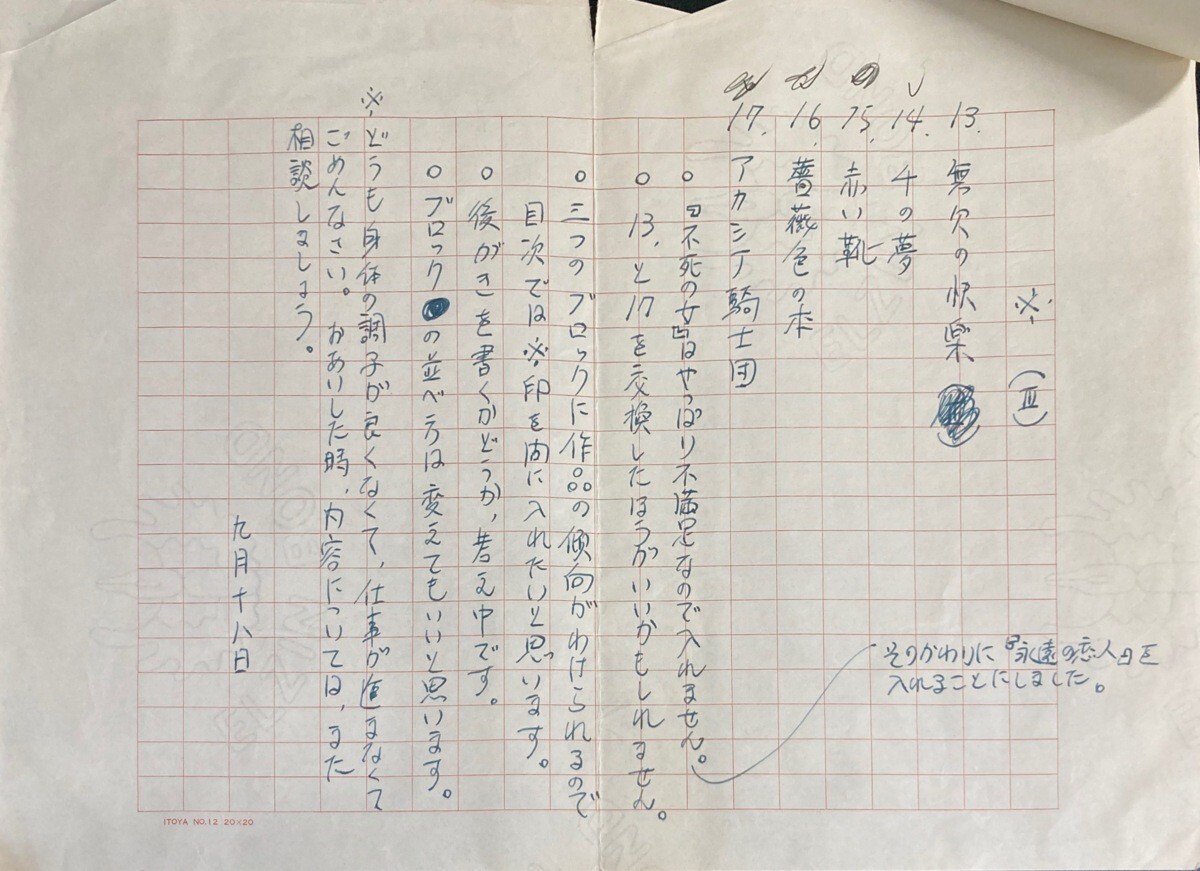 ※(Ⅲ)
13. 無欠の快楽
14. 千の夢
15. 赤い靴
16. 薔薇色の本
17. アカシア騎士団
○『不死の女』はやっぱり不満足なので入れません。
そのかわりに『永遠の恋人』を
入れることにしました。
○13.と17を交換したほうがいいかもしれません。
○三つのブロックに作品の傾向がわけられるので
目次では※印を内に入れたいと思います。
○後がきを書くかどうか、考え中です。
○ブロックの並べ方は変えてもいいと思います。
※どうも身体の調子が良くなくて、仕事が進まなくて
ごめんなさい。おあいした時、内容については、また
相談しましょう。
九月十八日
ITOYA NO.12 20×20